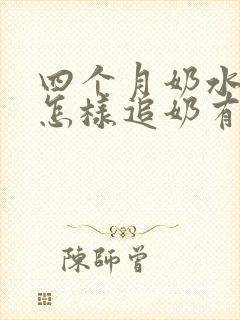 四个月奶水
怎様追奶有
陳師曾